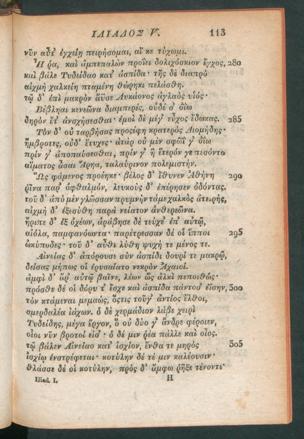 ΙΛΙΑΔΟΣ V. 113
νῦν αὖτ' ἐγχείῃ πειρήσομαι, αἴ κε τύχωμι.
Ἦ ῥα, καὶ ἀμπεπαλὼν προΐει δολιχόσκιον ἔγχος, 280
καὶ βάλε Τυδείδαο κατ' ἀσπίδα· τῆς δὲ διαπρὸ
αἰχμὴ χαλκείη πταμένη θώρηκι πελάσθη.
τῷ δ' ἐπὶ μακρὸν ἄϋσε Λυκάονος ἀγλαὸς υἱός·
Βέβληαι κενεῶνα διαμπερὲς, οὐδέ σ' ὀΐω
δηρὸν ἔτ' ἀνσχήσεσθαι· ἐμοὶ δὲ μέγ' εὖχος ἔδωκας. 285
Τὸν δ' οὐ ταρβήσας προσέφη κρατερὸς Διομήδης·
ἤμβροτες, οὐδ' ἔτυχες· ἀτὰρ οὐ μὲν σφῶΐ γ' ὀΐω
πρίν γ' ἀποπαύσεσθαι, πρίν γ' ἢ ἕτερόν γε πεσόντα
αἵματος ἆσαι Ἄρηα, ταλαύρινον πολεμιστήν.
Ὣς φάμενος προέηκε· βέλος δ' ἴθυνεν Ἀθήνη 290
ῥῖνα παρ' ὀφθαλμὸν, λευκοὺς δ' ἐπέρησεν ὀδόντας.
τοῦ δ' ἀπὸ μὲν γλῶσσαν πρυμνὴν τάμε χαλκὸς ἀτειρὴς,
αἰχμὴ δ' ἐξεσύθη παρὰ νείατον ἀνθερεῶνα.
ἤριπε δ' ἐξ ὀχέων, ἀράβησε δὲ τεύχε' ἐπ' αὐτῷ,
αἰόλα, παμφανόωντα· παρέτρεσσαν δέ οἱ ἵπποι 295
ὠκύποδες· τοῦ δ' αὖθι λύθη ψυχή τε μένος τε.
Αἰνείας δ' ἀπόρουσε σὺν ἀσπίδι δουρί τε μακρῷ,
δείσας μήπως οἱ ἐρυσαίατο νεκρὸν Ἀχαιοί.
ἀμφὶ δ' ἄρ' αὐτῷ βαῖνε, λέων ὣς ἀλκὶ πεποιθώς·
πρόσθε δέ οἱ δόρυ τ' ἔσχε καὶ ἀσπίδα πάντοσ' ἐΐσην, 300
τὸν κτάμεναι μεμαὼς, ὅστις τοῦγ' ἀντίος ἔλθοι,
σμερδαλέα ἰάχων. ὁ δὲ χερμάδιον λάβε χειρὶ
Τυδείδης, μέγα ἔργον, ὃ οὐ δύο γ' ἄνδρε φέροιεν,
οἷοι νῦν βροτοί εἰσ'· ὁ δέ μιν ῥέα πάλλε καὶ οἶος.
τῷ βάλεν Αἰνείαο κατ' ἰσχίον, ἔνθα τε μηρὸς 305
ἰσχίῳ ἐνστρέφεται· κοτύλην δέ τέ μιν καλέουσιν·
θλάσσε δέ οἱ κοτύλην, πρὸς δ' ἄμφω ῥῆξε τένοντε·
Iliad. I. H